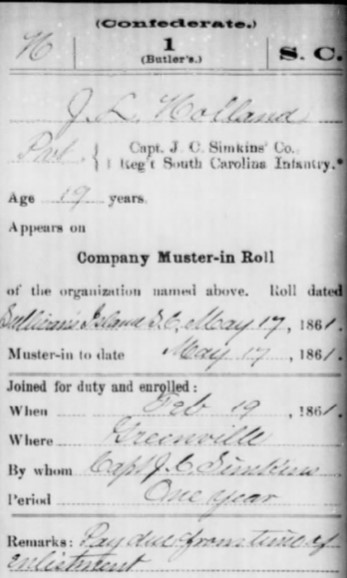 (Confederate.)
H 1 S. C.
(Butler's.)
J. L. Holland
Pvt { Capt. J. C. Simkins' Co.
1 Reg't South Carolina Infantry.*
Age 19 years.
Appears on
Company Muster-in Roll
of the organization named above. Roll dated
Sullivan's Island S. C. May 17, 1861.
Muster-in to date May 17, 1861.
Joined for duty and enrolled:
When Feb 19, 1861.
Where Greenville
By whom Capt J. C. Simkins
Period One year
Remarks: Pay due from time of
enlistment